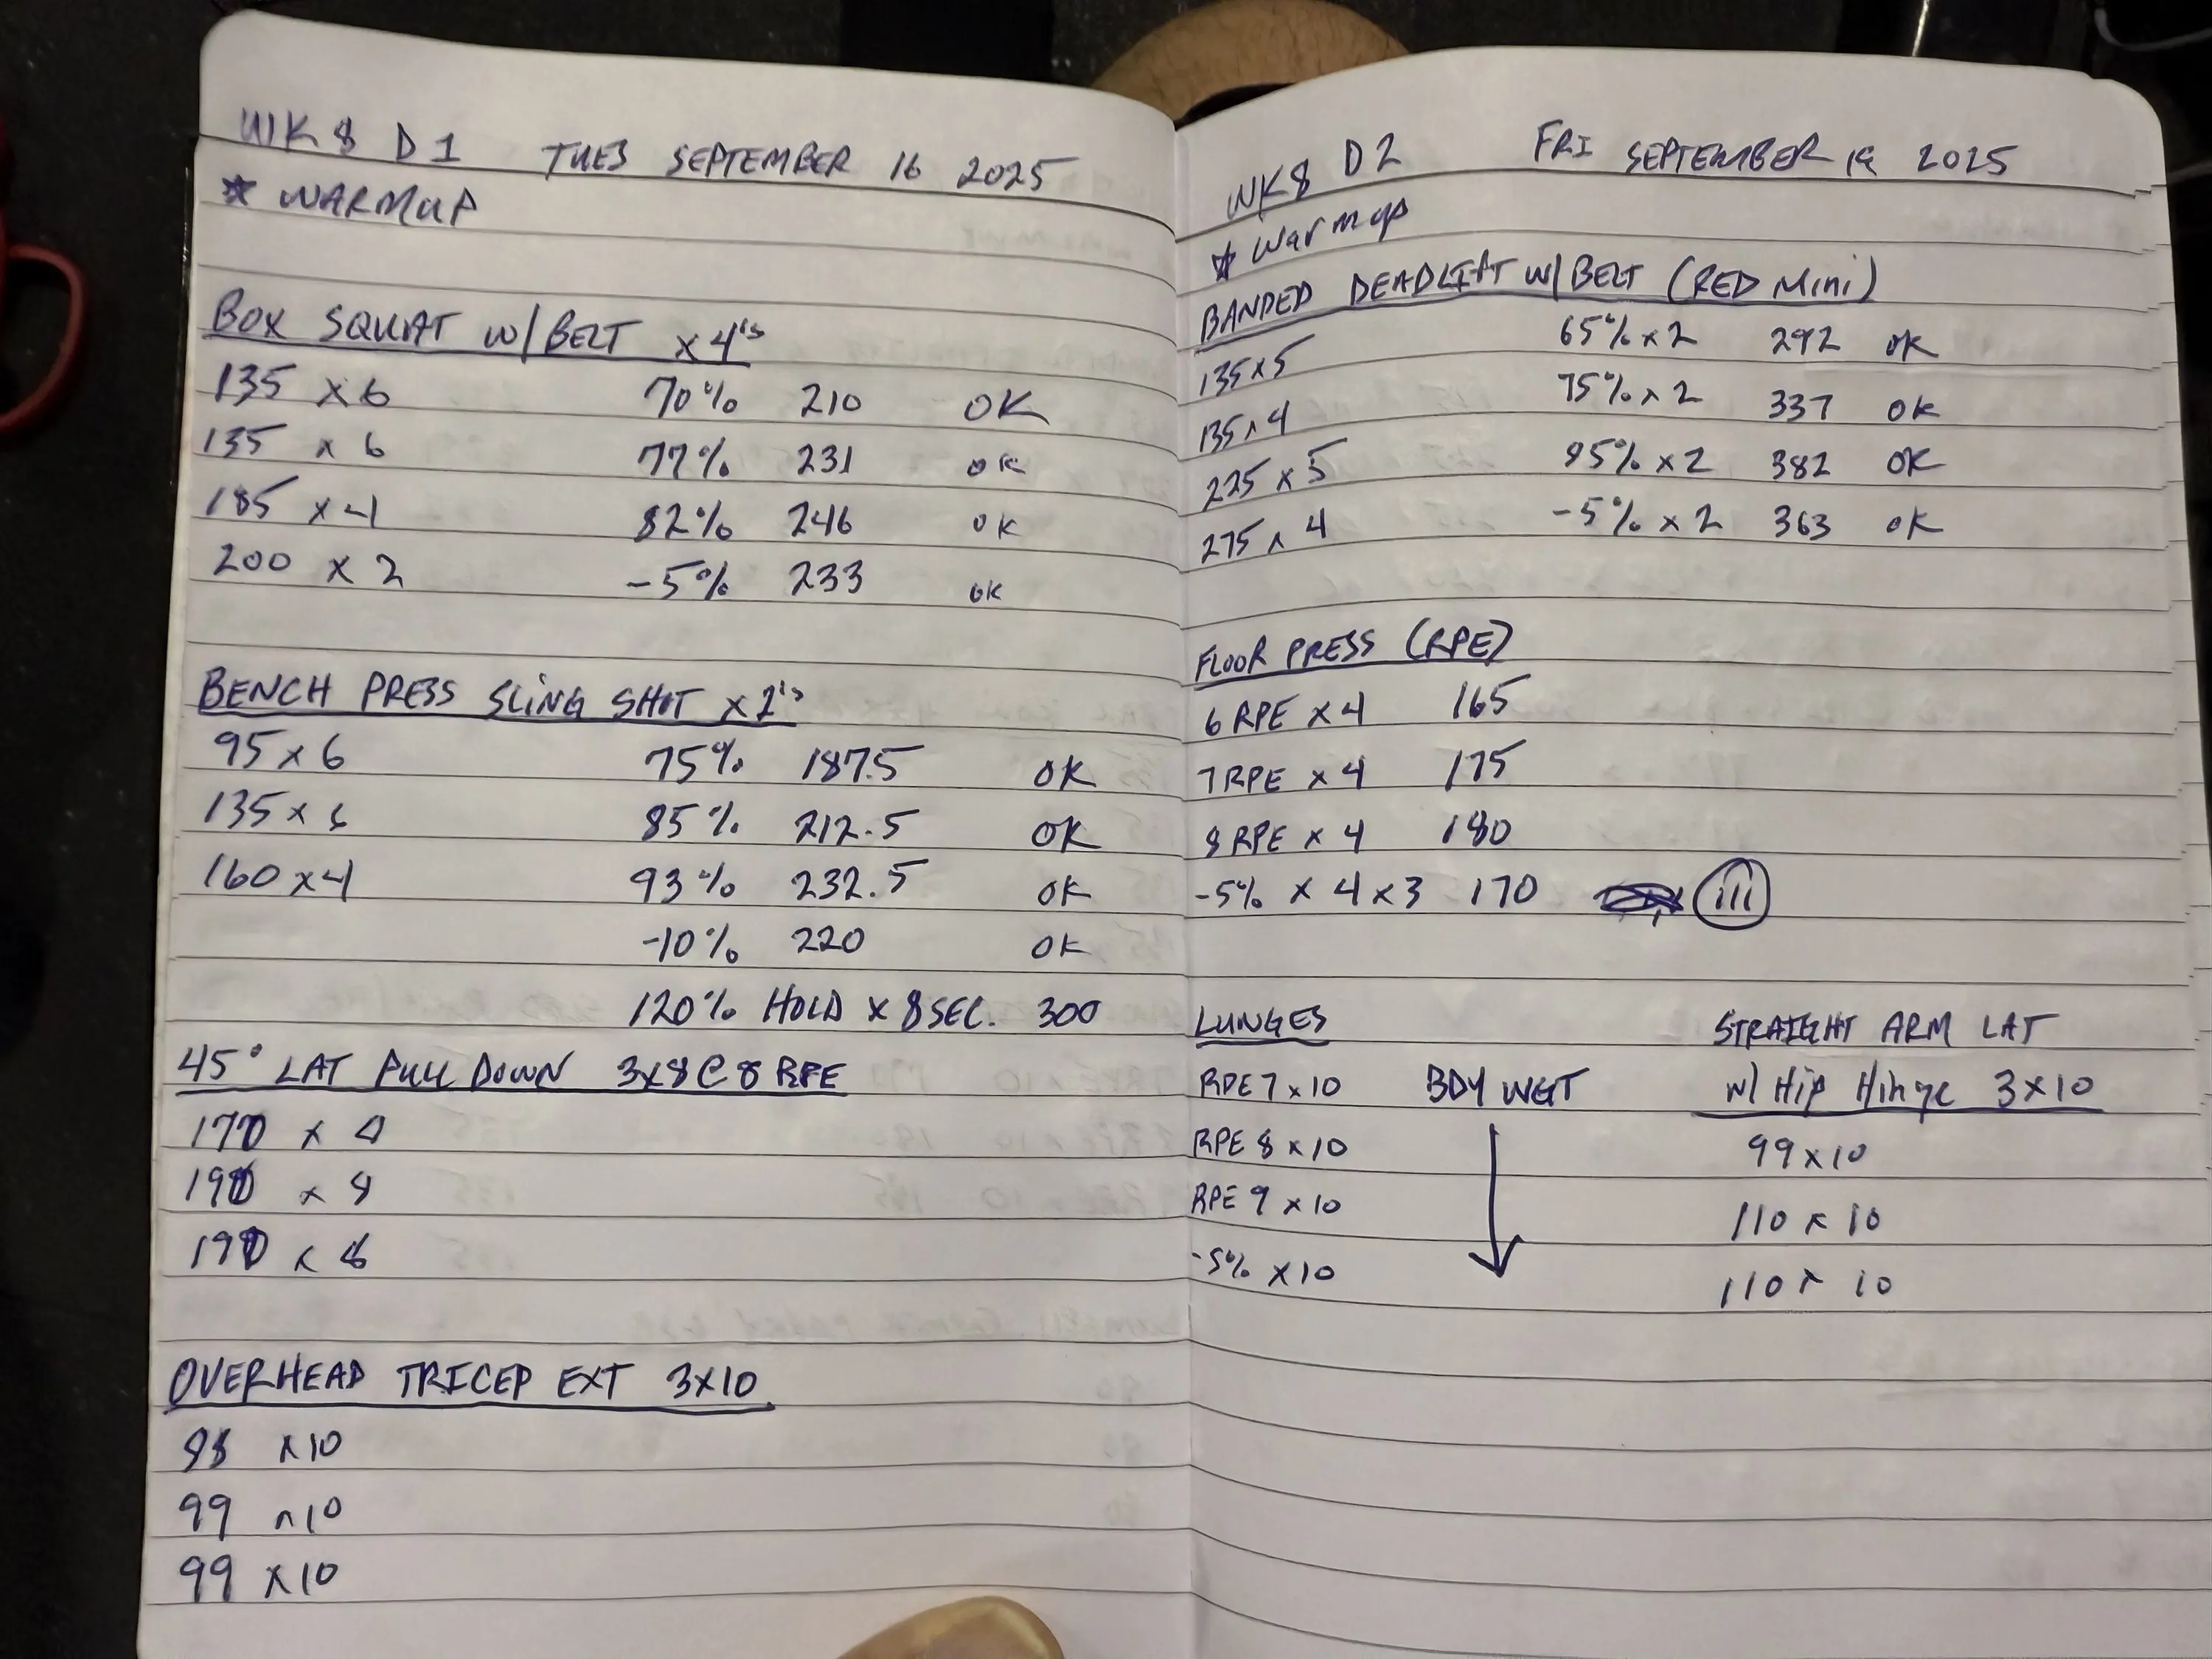 WK 8 D1 TUES SEPTEMBER 16 2025
* WARMUP
BOX SQUAT W/BELT x4's
135 x6 70% 210 OK
135 x 6 77% 231 OK
185 x4 82% 246 OK
200 x 2 -5% 233 OK
BENCH PRESS SLING SHOT x2's
95x6 75% 187.5 OK
135x6 85% 212.5 OK
160x4 93% 232.5 OK
-10% 220 OK
120% HOLD x 8SEC. 300
45° LAT PULL DOWN 3x8@8 RPE
170 x
190 x 8
190 x
OVERHEAD TRICEP EXT 3x10
x10
99 x10
99 x10
WK8 D2 FRI SEPTEMBER 19 2025
* Warmup
BANDED DEADLIFT W/BELT (RED Mini)
135x5 65%x2 292 OK
135x4 75%x2 337 OK
225x5 85%x2 382 OK
275x4 -5%x2 363 OK
FLOOR PRESS (RPE)
6 RPE x4 165
7 RPE x4 175
8 RPE x 4 180
-5% x 4x3 170 III
LUNGES
RPE7x10 BDY WGT
RPE 8 x10
RPE 9 x10
-5% x10
STRAIGHT ARM LAT
W/ Hip Hinge 3x10
99x10
110 x 10
110 x 10